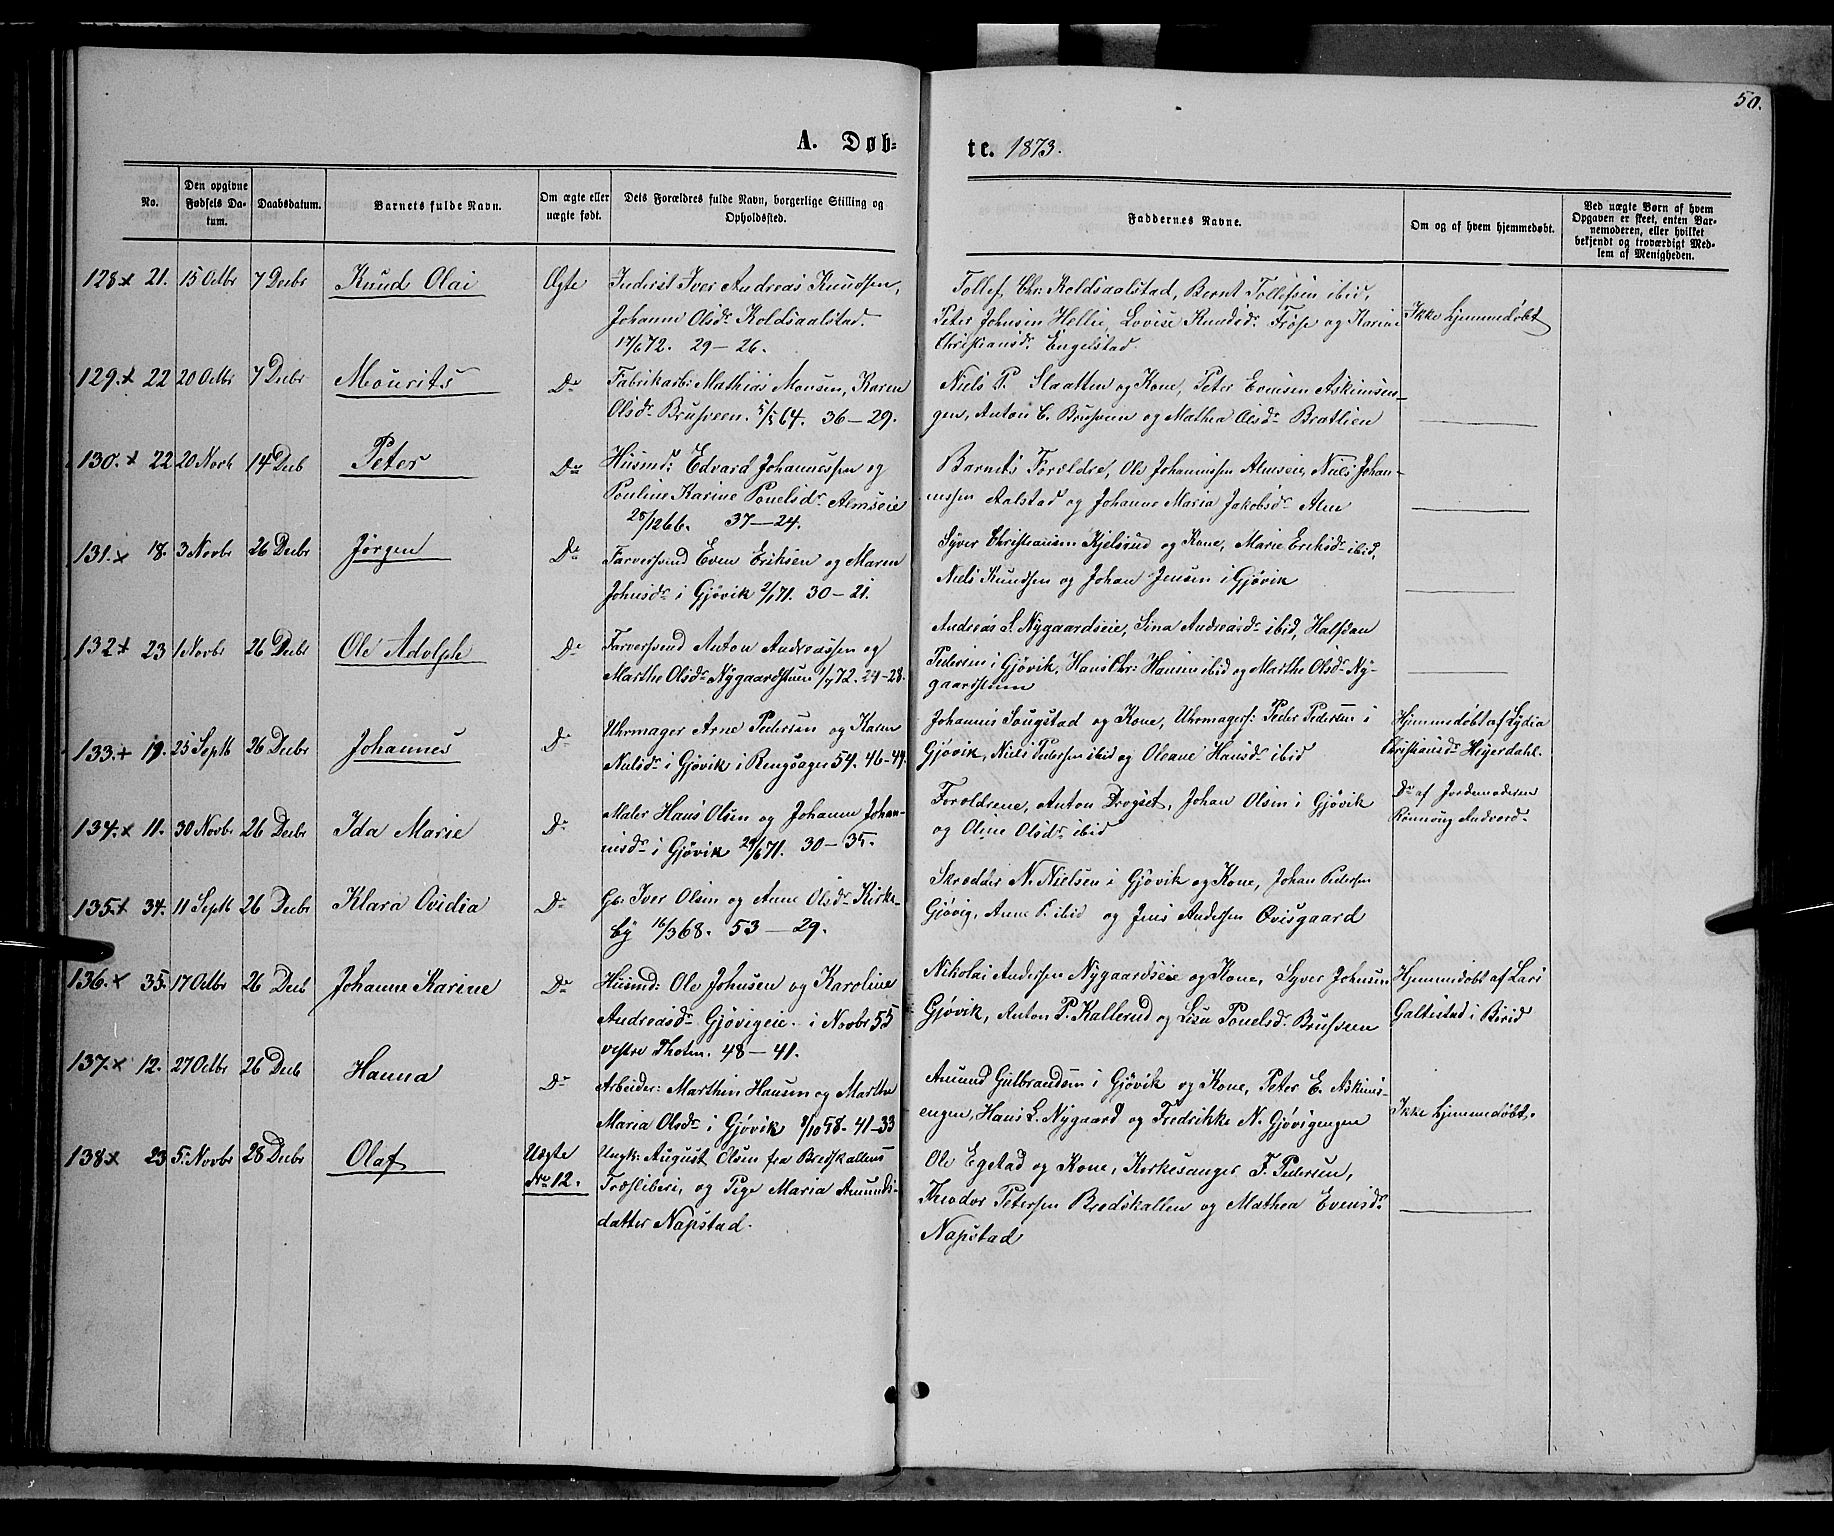 50.
A. Døb-
te. 1873.
No.
Den opgivne Fødsels Datum.
Daabsdatum.
Barnets fulde Navn.
Om ægte eller uægte født.
Dets Forældres fulde Navn, borgerlige Stilling og Opholdsted.
Faddernes Navne.
Om og af hvem hjemmedøbt.
Ved uægte Børn af hvem Opgaven er skeet, enten Barnemoderen, eller hvilket bekjendt og troværdigt Medlem af Menigheden.
128 x 21. 15 Octbr 7 Decbr Knud Olai Ægte Inderst Iver Andreas Knudsen,
Johanne Olsdr Koldsaalstad.
17/6 72. 29 – 26.
Tollef Chr: Koldsaalstad, Bernt Tollefsen ibid,
Peter Johnsen Hellie, Lovise Knudsdr Frøse og Karine
Christiansdr Engelstad.
Ikke hjemmedøbt
129. x 22 20 Octbr 7 Decbr Mourits Do Fabrikarb: Mathias Monsen, Karen
Olsdr Brusveen. 5/5 64. 36 – 29.
Niels P. Slaatten og Kone, Peter Evensen Askimsen-
gen, Anton C. Brusveen og Mathea Olsdr Bratlien
130. x 22 20 Novb 14 Decb Peter Do Husmd: Edvard Johannessen og
Pouline Karine Pouelsdr Almseie
28/12 66. 37 – 24.
Barnets Forældre, Ole Johannessen Almseie, Niels Johan-
nessen Aalstad og Johanne Maria Jakobsdr Alm
131. x 18. 3 Novbr 26 Decbr Jørgen Do Farversvend Even Eriksen og Maren
Johnsdr i Gjøvik 2/1 71. 30 – 21.
Syver Christiansen Kjelsrud og Kone, Marie Eriksdr ibid,
Niels Knudsen og Johan Jensen i Gjøvik
132 x 23 1 Novbr 26 Decbr Ole Adolph Do Farversvend Anton Andreassen og
Marthe Olsdr Nygaardstuen 1/7 72. 24 – 28.
Andreas L. Nygaardseie, Sina Andreasdr ibid, Halfdan
Pedersen i Gjøvik, Hans Chr: Hansen ibid og Marthe Olsdr Ny-
gaardstuen
133. + 19. 25 Septb 26 Decbr Johannes Do Uhrmager Arne Pedersen og Karen
Nielsdr i Gjøvik i Ringsager 54. 46 – 49.
Johannes Sougstad og Kone, Uhrmagers: Peder Pedersen i
Gjøvik, Niels Pedersen ibid og Oleane Hansdr ibid
Hjemmedøbt af Lydia
Christiansdr Heyerdahl.
134. x 11. 30 Novbr 26 Decbr Ida Marie Do Maler Hans Olsen og Johanne Johan-
nesdr i Gjøvik 29/6 71. 30 – 35.
Forældrene, Anton Drogset, Johan Olsen i Gjøvik
og Oline Olsdr ibid
Do af Jordemoderen
Rønnaug Andvord.
135. x 34. 11 Septb 26 Decbr Klara Ovidia Do Gb: Iver Olsen og Anne Olsdr Kirke-
by 16/3 68. 53 – 29.
Skrædder N. Nielsen i Gjøvik og Kone, Johan Pedersen
Gjøvig, Anne P. ibid og Jens Andersen Ovisgaard
136. x 35. 17 Octbr 26 Decb Johanne Karine Do Husmd: Ole Johnsen og Karoline
Andreasdr Gjøvigeie. i Novbr 55
vestre Thoten. 48 – 41.
Nikolai Andersen Nygaardseie og Kone, Syver Johnsen
Gjøvik, Anton P. Kallerud og Lisa Pouelsdr Brusveen
Hjemmedøbt af Lars
Galtestad i Birid
137. x 12. 27 Octbr 26 Decb Hanna Do Arbeider: Marthin Hansen og Marthe
Maria Olsdr i Gjøvik 9/10 58. 41 – 33
Amund Gulbrandsen i Gjøvik og Kone, Peter E. Askims-
engen, Hans L. Nygaard og Fredrikke N. Gjøvigengen
Ikke hjemmedøbt.
138 x 23 5. Novbr 28 Decbr Olaf Uægte
No 12.
Ungk: August Olsen fra Bredskallens
Træsliberi, og Pige Maria Amunds-
datter Napstad.
Ole Egstad og Kone, Kirkesanger F. Pedersen,
Theodor Petersen Bredskallen og Mathea Evensdr
Napstad